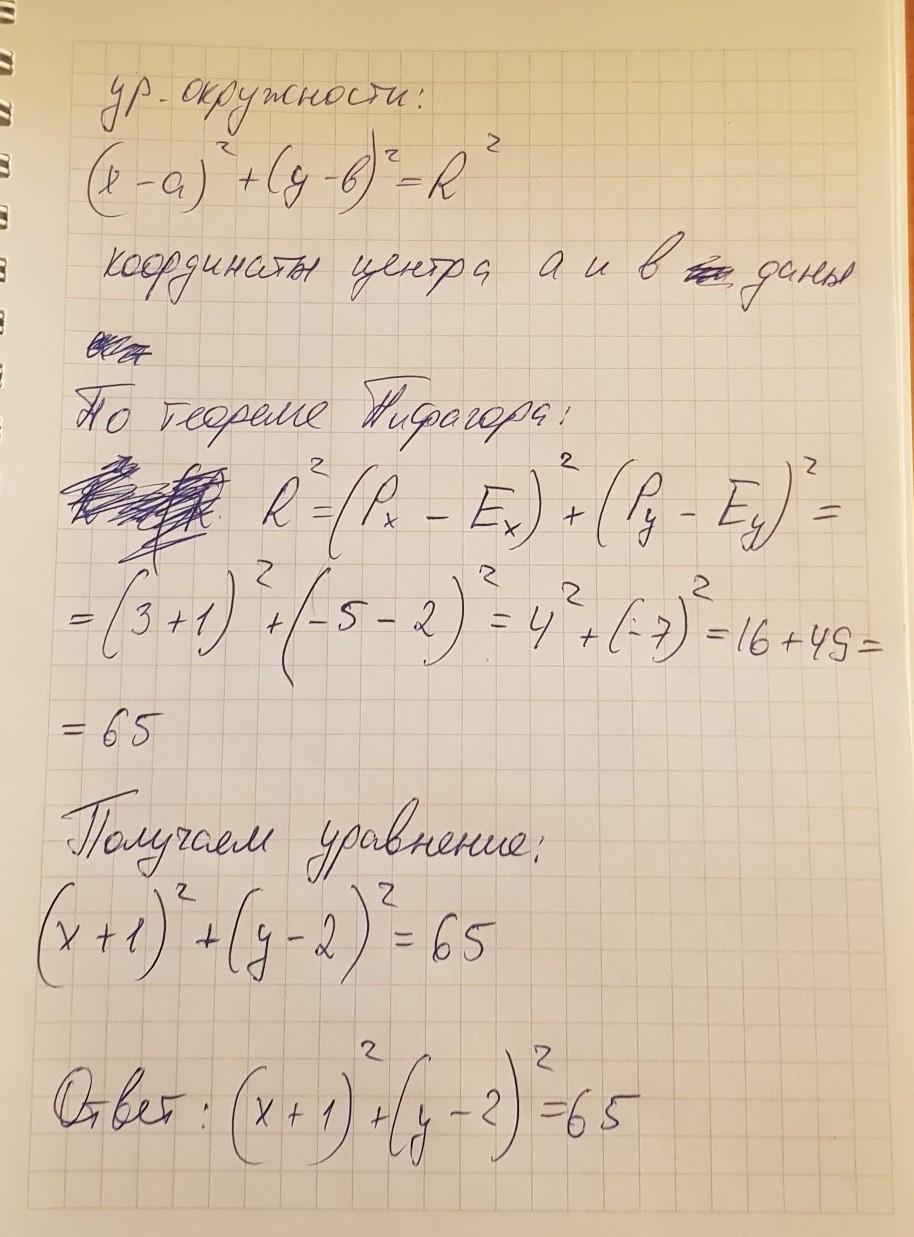 ур. окружности:
(x - a)² + (y - в)² = R²
координаты центра а и в даны
По теореме Пифагора:
R² = (Pₓ - Eₓ)² + (Py - Ey)² =
= (3 + 1)² + (-5 - 2)² = 4² + (-7)² = 16 + 49 =
= 65
Получаем уравнение:
(x + 1)² + (y - 2)² = 65
Ответ: (x + 1)² + (y - 2)² = 65